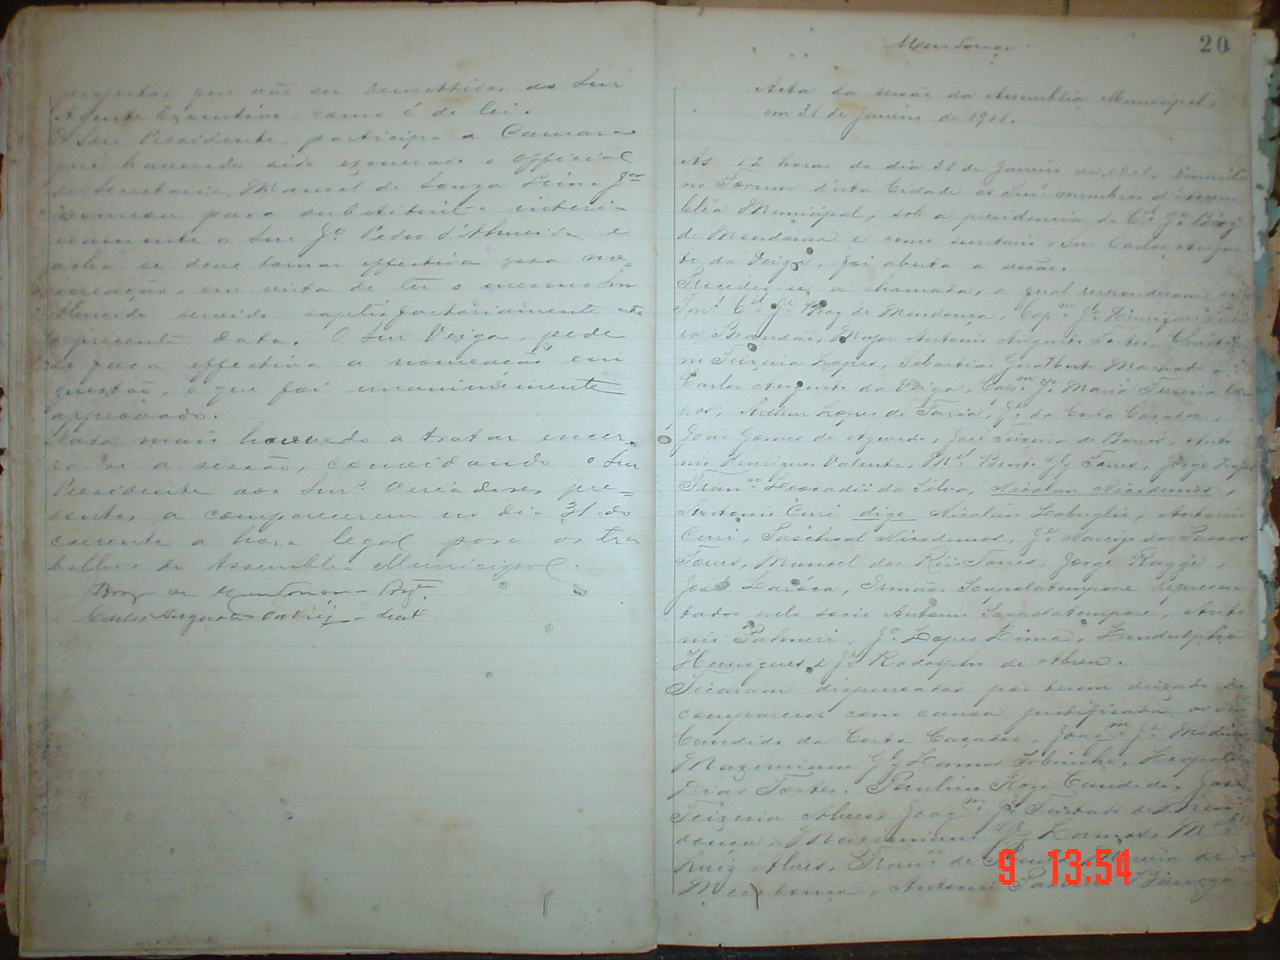 projectos que vão ser remettidos ao Snr
Agente Executivo como é de lei.
O Snr Presidente, participa a Camara
que havendo sido exonerado o official
da Secretaria, Manoel de Souza Lima Jor
para substituil-o interi
namente o Snr Jo. Pedro d'Almeida e
acha se deve tornar effectiva essa no=
meação, em vista de ter o mesmo Snr
Almeida servido satisfactoriamente até
a presente data. O Snr Veiga, pede
se faça effectiva a nomeação em
questão, o que foi unanimemente
approvado.
Nada mais havendo a tratar encer=
ra-se a sessão, convidando o Snr
Presidente aos Snrs. Vereadores pre=
sentes a comparecerem no dia 31 do
corrente a hora legal para os tra
balhos da Assembléa Municipal.
Braz de Mendonça - Prezte.
Carlos Augusto da Veiga - Secret
Mendonça
20
Acta da sessão da Assembléa Municipal,
em 31 de Janeiro de 1901.
As 12 horas do dia 31 de Janeiro de 1901, reunidos
no Forum d'esta Cidade os Snrs. membros d'Assem
bléa Municipal, sob a presidencia do Cel. Je. Braz
de Mendonça e como secretario o Snr Carlos Augus
to da Veiga, foi aberta a sessão.
Procedeu-se a chamada, a qual responderam os
Snrs. Cel. Je. Braz de Mendonça, Capm. Je. Henriques
Brandão, Major Antonio Augusto Fortes,
Teixeira Lopes, Sebastião Machado e
Carlos Augusto da Veiga, Capm. Je. Maria Ferreira Cam
pos, Arthur Lopes de Faria, Je. da Costa Caçador,
João Gomes de Azevedo, José Teixeira de Barros, Anto
nio Henriques Valente, Mel. Bento Glz Torres, Jorge
Franco. Leocadio da Silva, Nicolau Nicodemos,
Antonio Curi digo Nicolau Labuglia, Antonio
Curi, Paschoal Nicodemos, Je. Narcizo dos Passos
Torres, Manoel dos Reis Torres, Jorge Raggi,
José Laróca, Irmãos Scapolatempore represen
tados pelo socio Antonio Scapolatempore, Anto
nio Palmeri, Je. Lopes Lima, Landulpho
Henriques e Je. Rodolpho de Abreu.
Ficaram dispensados por terem deixado de
comparecer com causa justificada os Snrs
Candido da Costa Caçador, Joaqm. Je.
Maximiano Glz Lamas Sobrinho, Leopoldo
Dias Fortes, Paulino Roza Candido, José
Teixeira Alves, Joaqm. Je. Tristão de Men
donça, Maximiano Glz Lamas, Mel.
Luiz Alves, Franco. de Paula de
Mendonça, Antonio
9 13:54